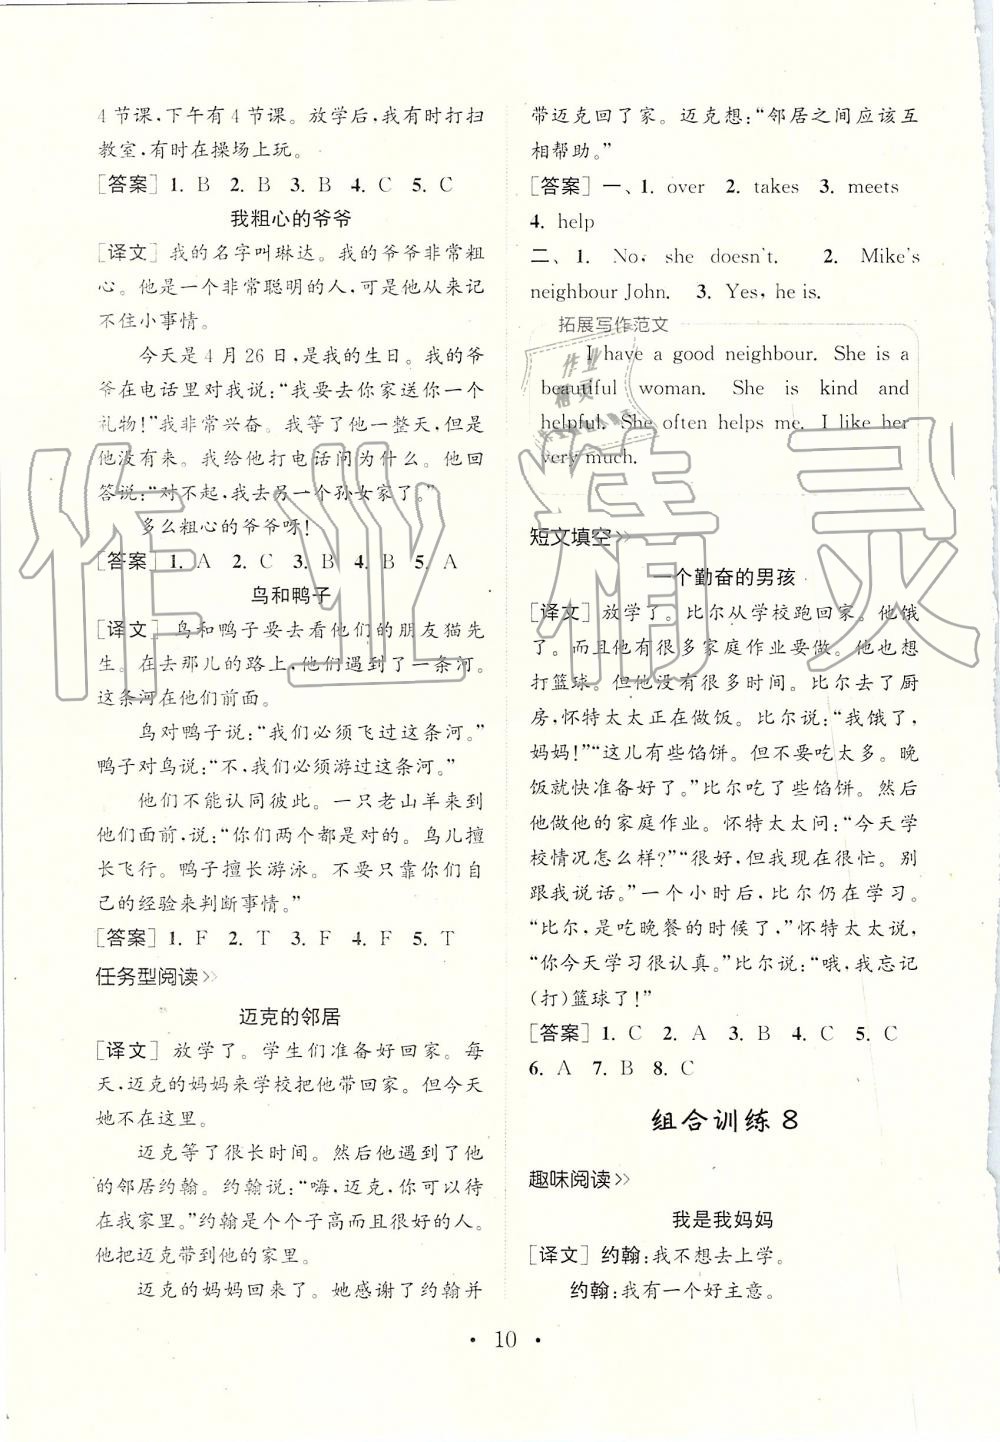 4 节课,下午有 4 节课。放学后,我有时打扫
教室,有时在操场上玩。
[答案] 1. B 2. B 3. B 4. C 5. C
我粗心的爷爷
[译文] 我的名字叫琳达。我的爷爷非常粗
心。他是一个非常聪明的人,可是他从来记
不住小事情。
今天是 4 月 26 日,是我的生日。我的爷
爷在电话里对我说:“我要去你家送你一个
礼物!”我非常兴奋。我等了他一整天,但是
他没有来。我给他打电话问为什么。他回
答说:“对不起,我去另一个孙女家了。”
多么粗心的爷爷呀!
[答案] 1. A 2. C 3. B 4. B 5. A
鸟和鸭子
[译文] 鸟和鸭子要去看他们的朋友猫先
生。在去那儿的路上,他们遇到了一条河。
这条河在他们前面。
鸟对鸭子说:“我们必须飞过这条河。”
鸭子对鸟说:“不,我们必须游过这条河。”
他们不能认同彼此。一只老山羊来到
他们面前,说:“你们两个都是对的。鸟儿擅
长飞行。鸭子擅长游泳。不要只靠你们自
己的经验来判断事情。”
[答案] 1. F 2. T 3. F 4. F 5. T
任务型阅读>>
迈克的邻居
[译文] 放学了。学生们准备好回家。每
天,迈克的妈妈来学校把他带回家。但今天
她不在这里。
迈克等了很长时间。然后他遇到了他
的邻居约翰。约翰说:“嗨,迈克,你可以待
在我家里。”约翰是个个子高而且很好的人。
他把迈克带到他的家里。
迈克的妈妈回来了。她感谢了约翰并
带迈克回了家。迈克想:“邻居之间应该互
相帮助。”
[答案] 一、1. over 2. takes 3. meets
4. help
二、1. No, she doesn't. 2. Mike's
neighbour John. 3. Yes, he is.
拓展写作范文
I have a good neighbour. She is a
beautiful woman. She is kind and
helpful. She often helps me. I like her
very much.
短文填空>>
一个勤奋的男孩
[译文] 放学了。比尔从学校跑回家。他饿
了。而且他有很多家庭作业要做。他也想
打篮球。但他没有很多时间。比尔去了厨
房,怀特太太正在做饭。比尔说:“我饿了,
妈妈!”“这儿有些馅饼。但不要吃太多。晚
饭就快准备好了。”比尔吃了些馅饼。然后
他做他的家庭作业。怀特太太问:“今天学
校情况怎么样?”“很好,但我现在很忙。别
跟我说话。”一个小时后,比尔仍在学习。
“比尔,是吃晚餐的时候了,”怀特太太说,
“你今天学习很认真。”比尔说:“哦,我忘记
(打)篮球了!”
[答案] 1. C 2. A 3. B 4. C 5. C
6. A 7. B 8. C
组合训练 8
趣味阅读>>
我是我妈妈
[译文] 约翰:我不想去上学。
约翰:我有一个好主意。
· 10 ·
作业精灵